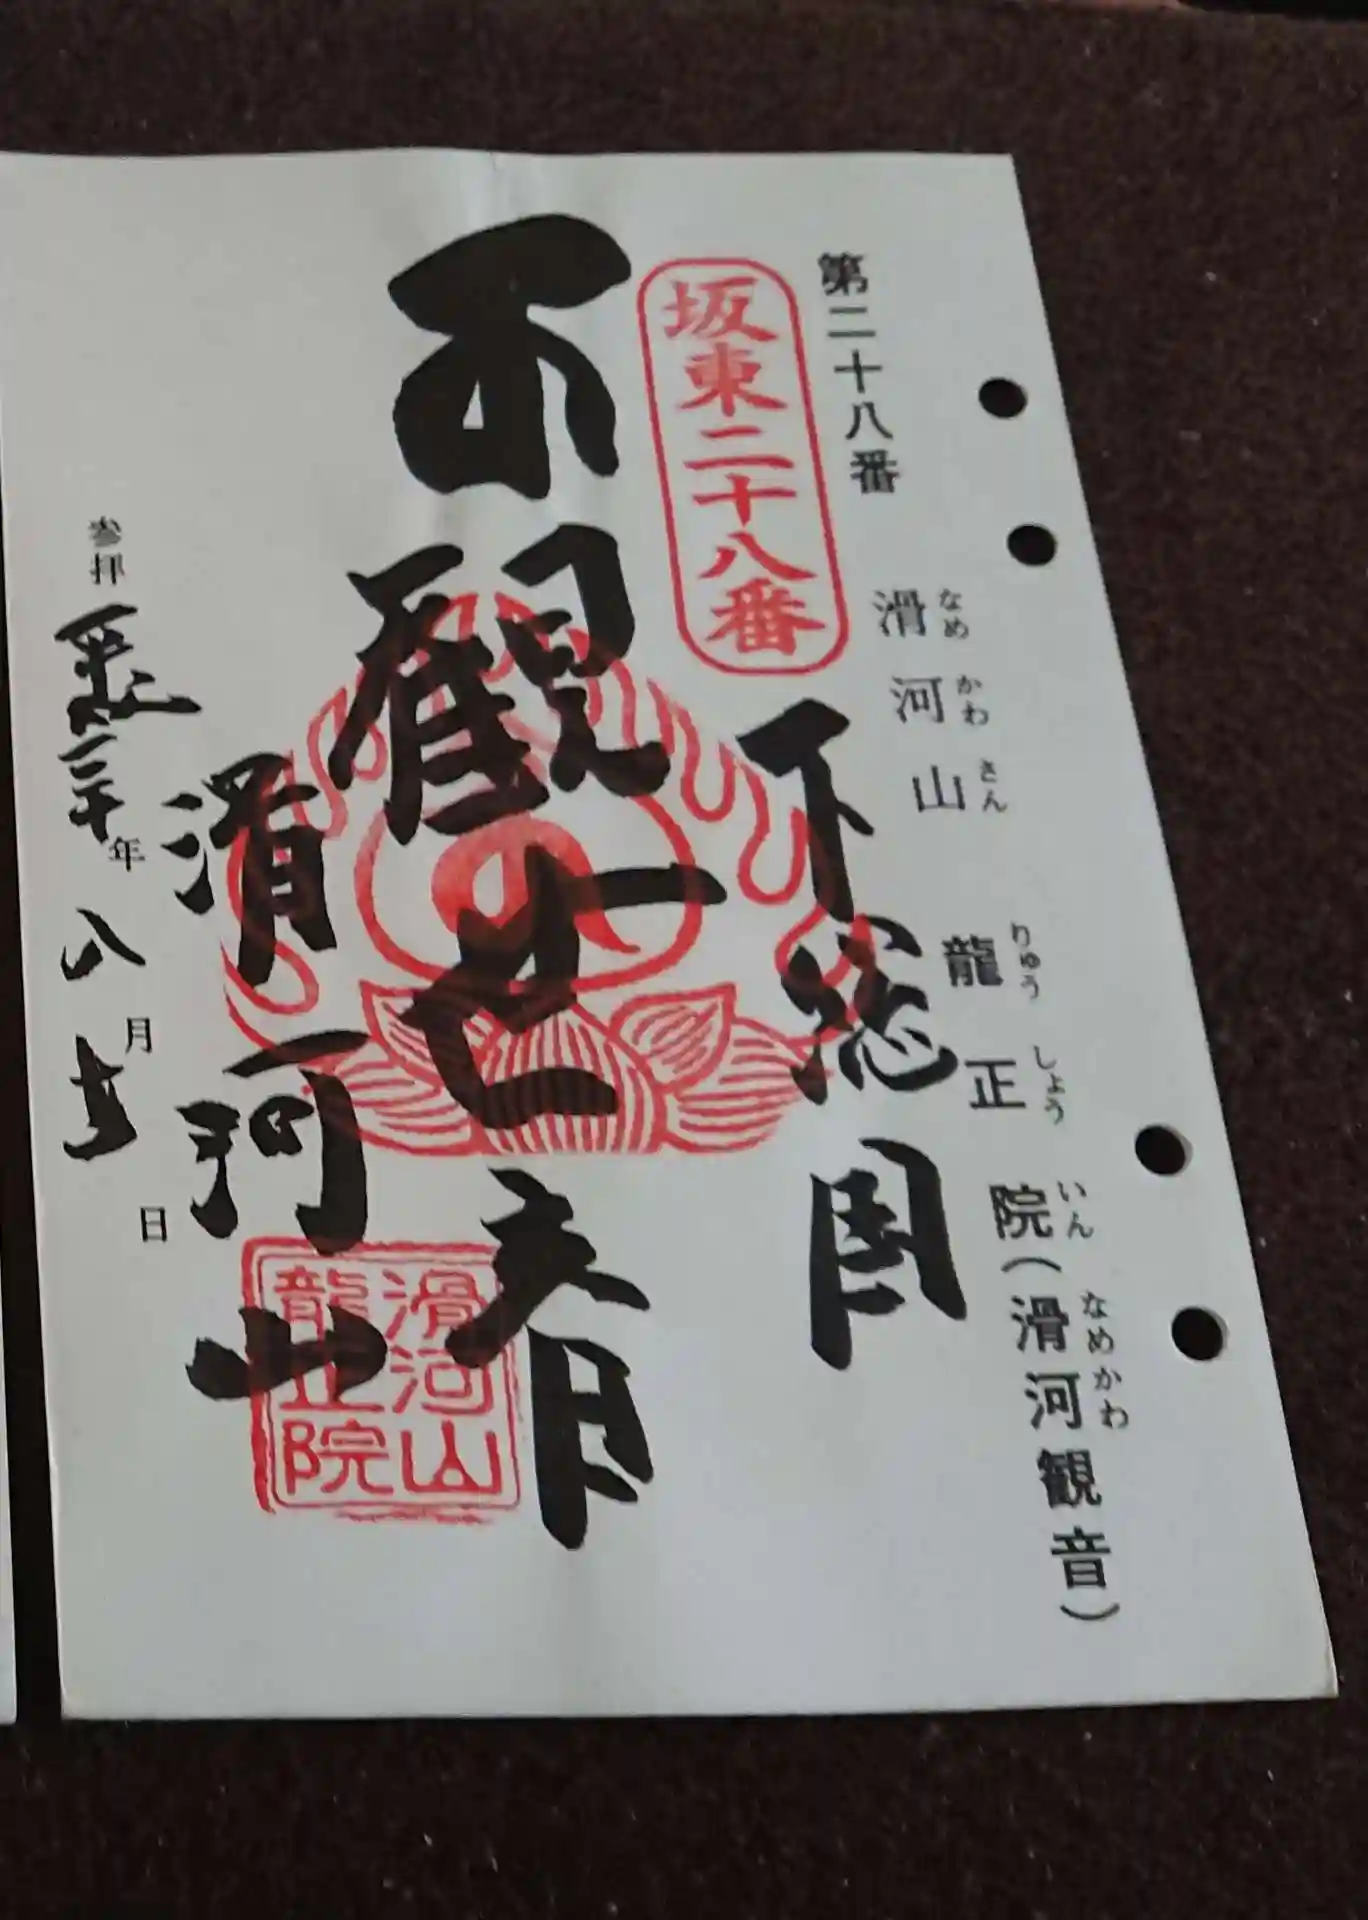 第二十八番 滑河山 龍正院(滑河観音)
なめ かわ さん りゅう しょう いん なめかわ
坂東二十八番
下総国
観世音
滑河山
滑河山
龍正院
参拝 平成二十年 八月 日